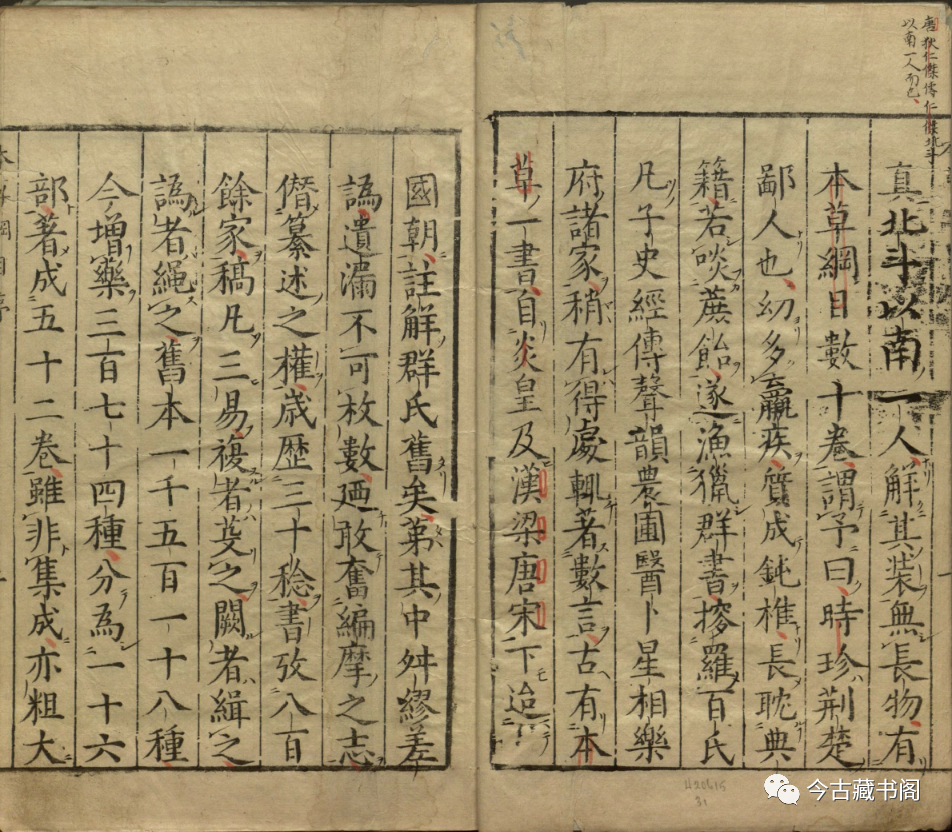 唐狄仁傑傳仁傑北斗
以南一人而已
真北斗以南一人解其装無長物有
本草綱目數十卷謂予曰時珍荆楚
鄙人也幼多羸疾質成鈍椎長耽典
籍若啖蔗飴遂漁獵群書搜羅百氏
凡子史經傳聲韻農圃醫卜星相樂
府諸家稍有得處輒著數言古有本
草一書自炎皇及漢梁唐宋下迨
國朝註解群氏舊矣第其中舛繆差
譌遺漏不可枚數廼敢奮編摩之志
僭纂述之權歲歷三十稔書攷八百
餘家稿凡三易複者芟之闕者緝之
譌者繩之舊本一千五百一十八種
今增藥三百七十四種分為一十六
部著成五十二卷雖非集成亦粗大
今古藏书阁